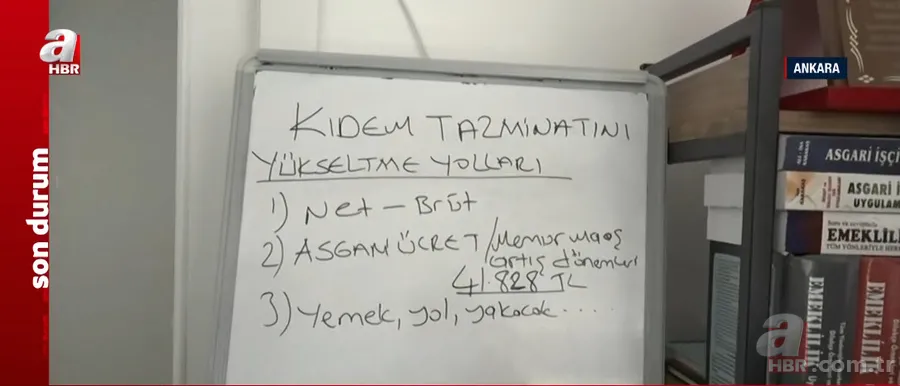 a
HBR
son durum
ANKARA
KIDEM TAZMİNATINI
YÜKSELTME YOLLARI
1) Net – Brüt
2) ASGARİ ÜCRET / Memur maaş
artış dönemleri
41.828 TL
3) Yemek, yol, yakacak .....
ASGARİ İŞÇİ
ASGARİ İ
UYGULAM
EMEKLİLİ
TÜM YÖNLERİYLE HERK
EMEKLİLİK
EMEKLİLİK
a
HBR.com.tr